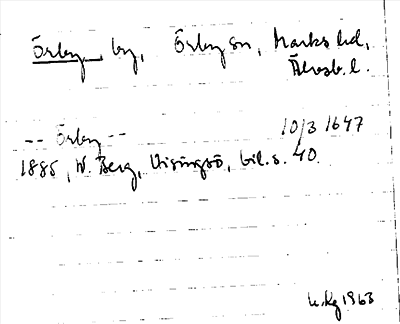 Örby by, Örby sn, Marks hd,
Älvsb. l.
-- Örby -- 10/3 1647
1885, W. Berg, Visingsö, bil. s. 40.
1963